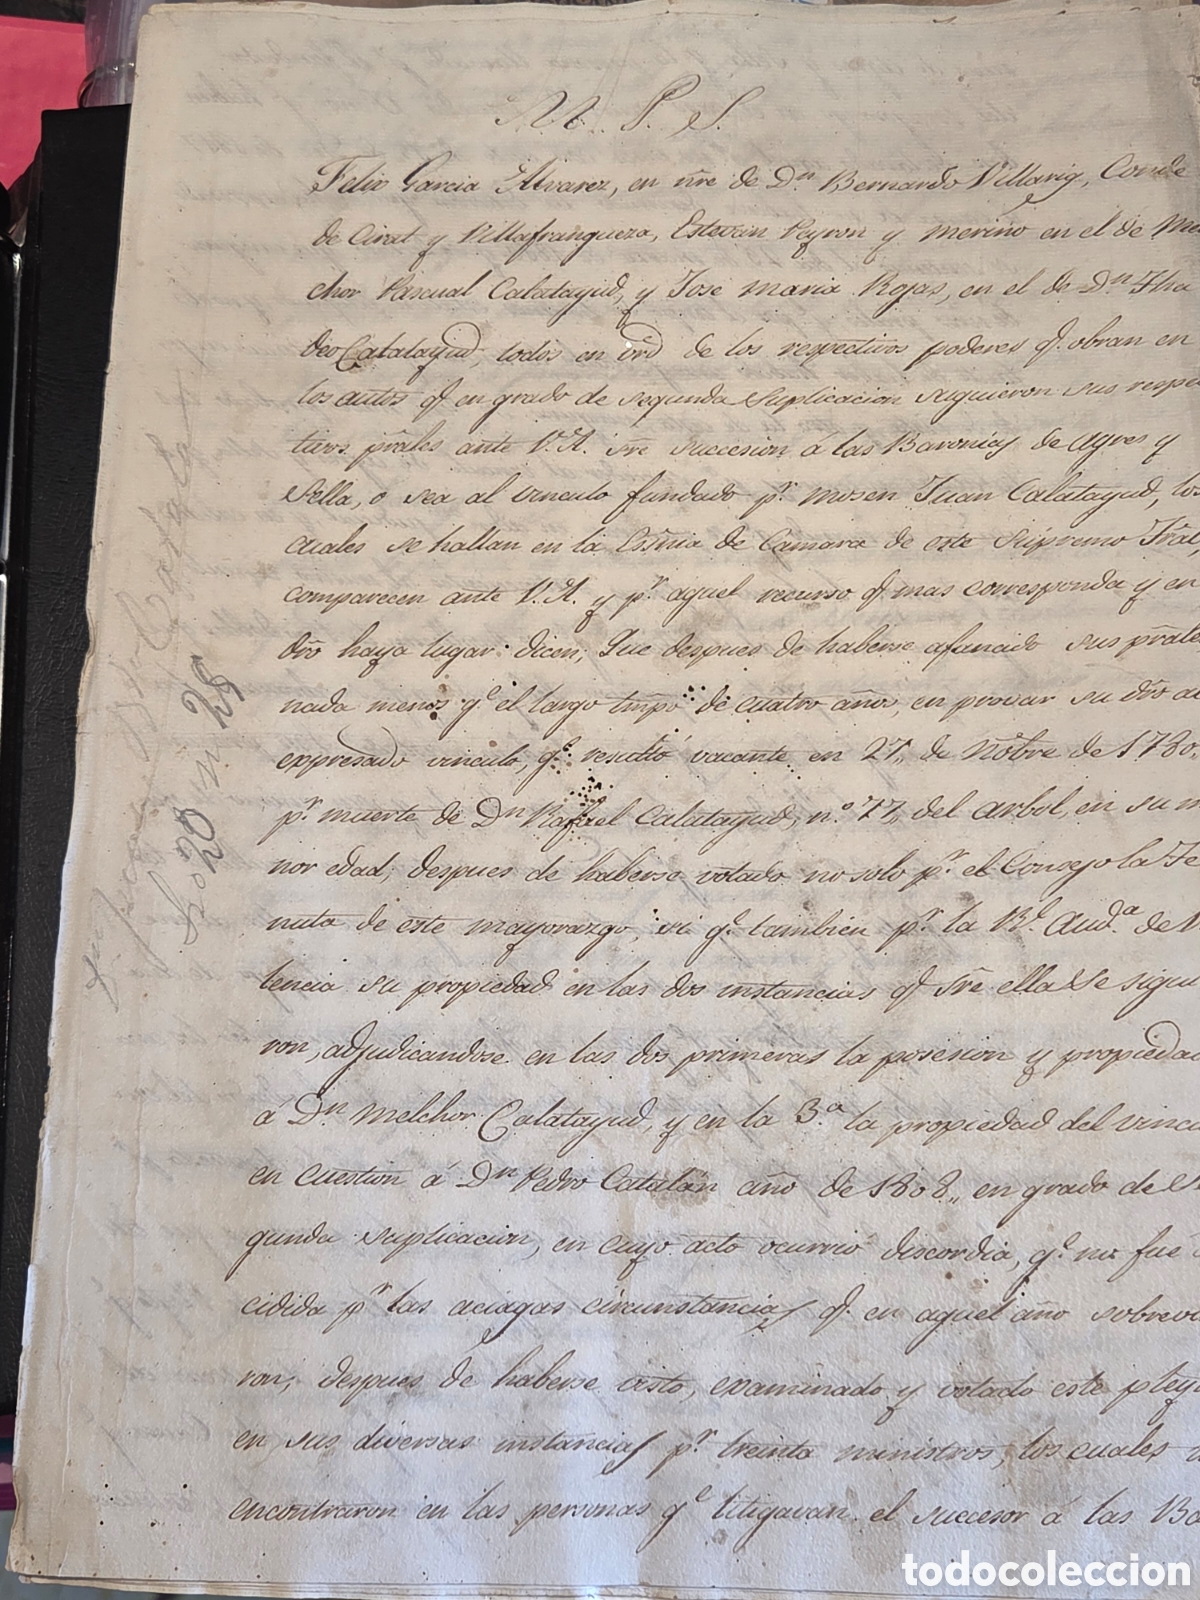 M. P. S.
Felix Garcia Alvarez, en nre de Dn Bernardo Villarig, Conde
de Cirat y Villafranqueza, Estevan Peyron y merino en el de Mel
chor Pascual Calatayud, y Jose maria Rojas, en el de Dn Tha
deo Calatayud, todos en vrd de los respectivos poderes q. obran en
los autos q. en grado de segunda Suplicacion siguieron sus respec
tivos prales ante V.A. sre succesion á las Baronias de Agres y
Sella, o sea al vinculo fundado pr. mosen Juan Calatayud, los
cuales se hallan en la Esnia de Camara de este Supremo Tral
comparecen ante V.A. y pr. aquel recurso q. mas corresponda y en
dro haya lugar: dicen; Que despues de haberse afanado sus prales
nada menos qe. el largo tmpo de cuatro años, en provar su dro al
expresado vinculo, qe. resultó vacante en 27,, de Nobre de 1780,,
pr. muerte de Dn Rafael Calatayud, n.º 77, del arbol, en su me
nor edad; despues de haberse votado no solo pr. el Consejo la Te
nuta de este mayorazgo, si qe. tambien pr. la Rl. Auda. de Va
lencia su propiedad en las dos instancias q. sre ella se sigui
ron, adjudicandose en las dos primeras la posesion y propiedad
á Dn Melchor Calatayud, y en la 3.a la propiedad del vincu
en cuestion á Dn Pedro Catalán año de 1808,, en grado de Se
gunda suplicacion, en cuyo acto ocurrió discordia, qe. no fué de
cidida pr las aciagas circunstancias q. en aquel año sobrevi
ron; despues de haberse visto, examinado y votado este pleyt
en sus diversas instancias pr. treinta ministros, los cuales
encontraron en las personas qe litigavan el succesor á las Ba
todocoleccion